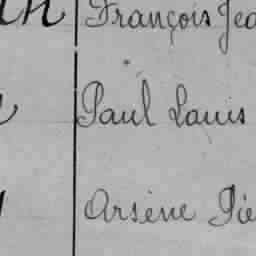 François Jea
Paul Louis
Arsène Pie